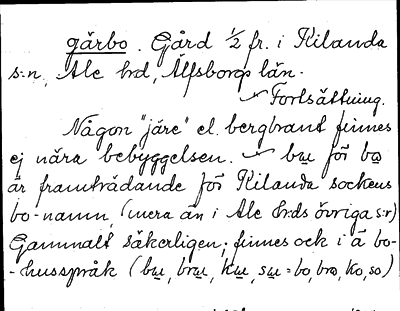 gärbo. Gård 1/2 fr. i Kilanda
s:n, Ale hrd, Älfsborgs län.
Fortsättning.
Någon "järe" el. bergbrant finnes
ej nära bebyggelsen. bu för bo
är framträdande för Kilanda sockens
bo-namn, (mera än i Ale hrds övriga s:r)
Gammalt säkerligen; finnes ock i ä bo-
-husspråk (bu, bru, ku, su = bo, bro, ko, so)